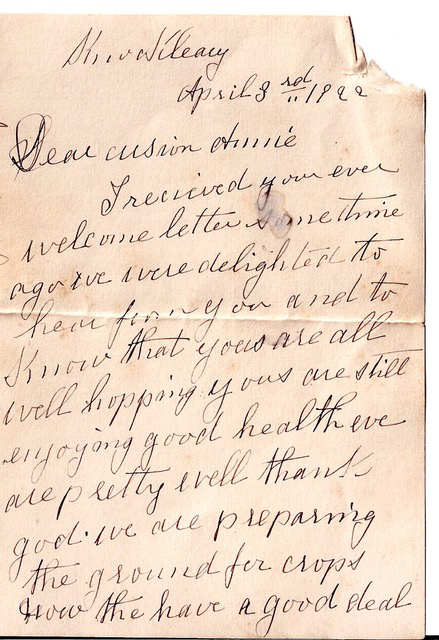 April 3rd 1922
Dear cusion Annie
I recieved your ever
welcome letter some time
ago we were delighted to
hear from you and to
Know that yous are all
well hopping yous are still
enjoying good health we
are pretty well thank
god. we are preparing
the ground for crops
now the have a good deal